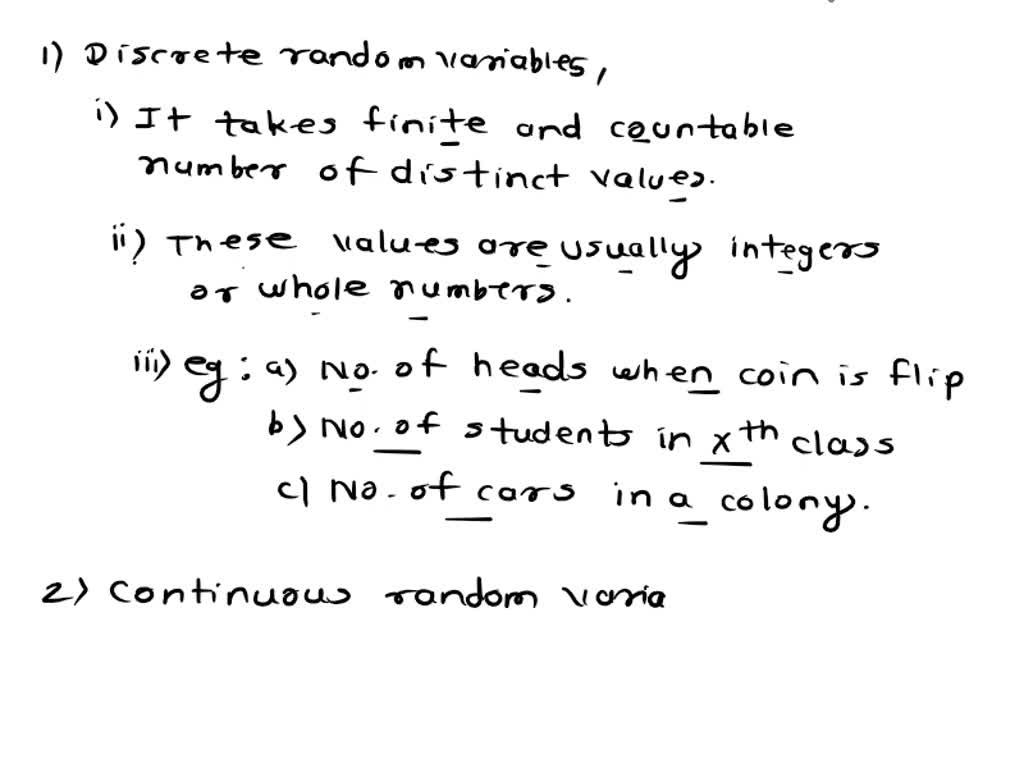 1) Discrete random variables,
i) It takes finite and countable
number of distinct values.
ii) These values are usually integers
or whole numbers.
iii) eg: a) No. of heads when coin is flip
b) No. of students in xth class
c) No. of cars in a colony.
2) Continuous random varia